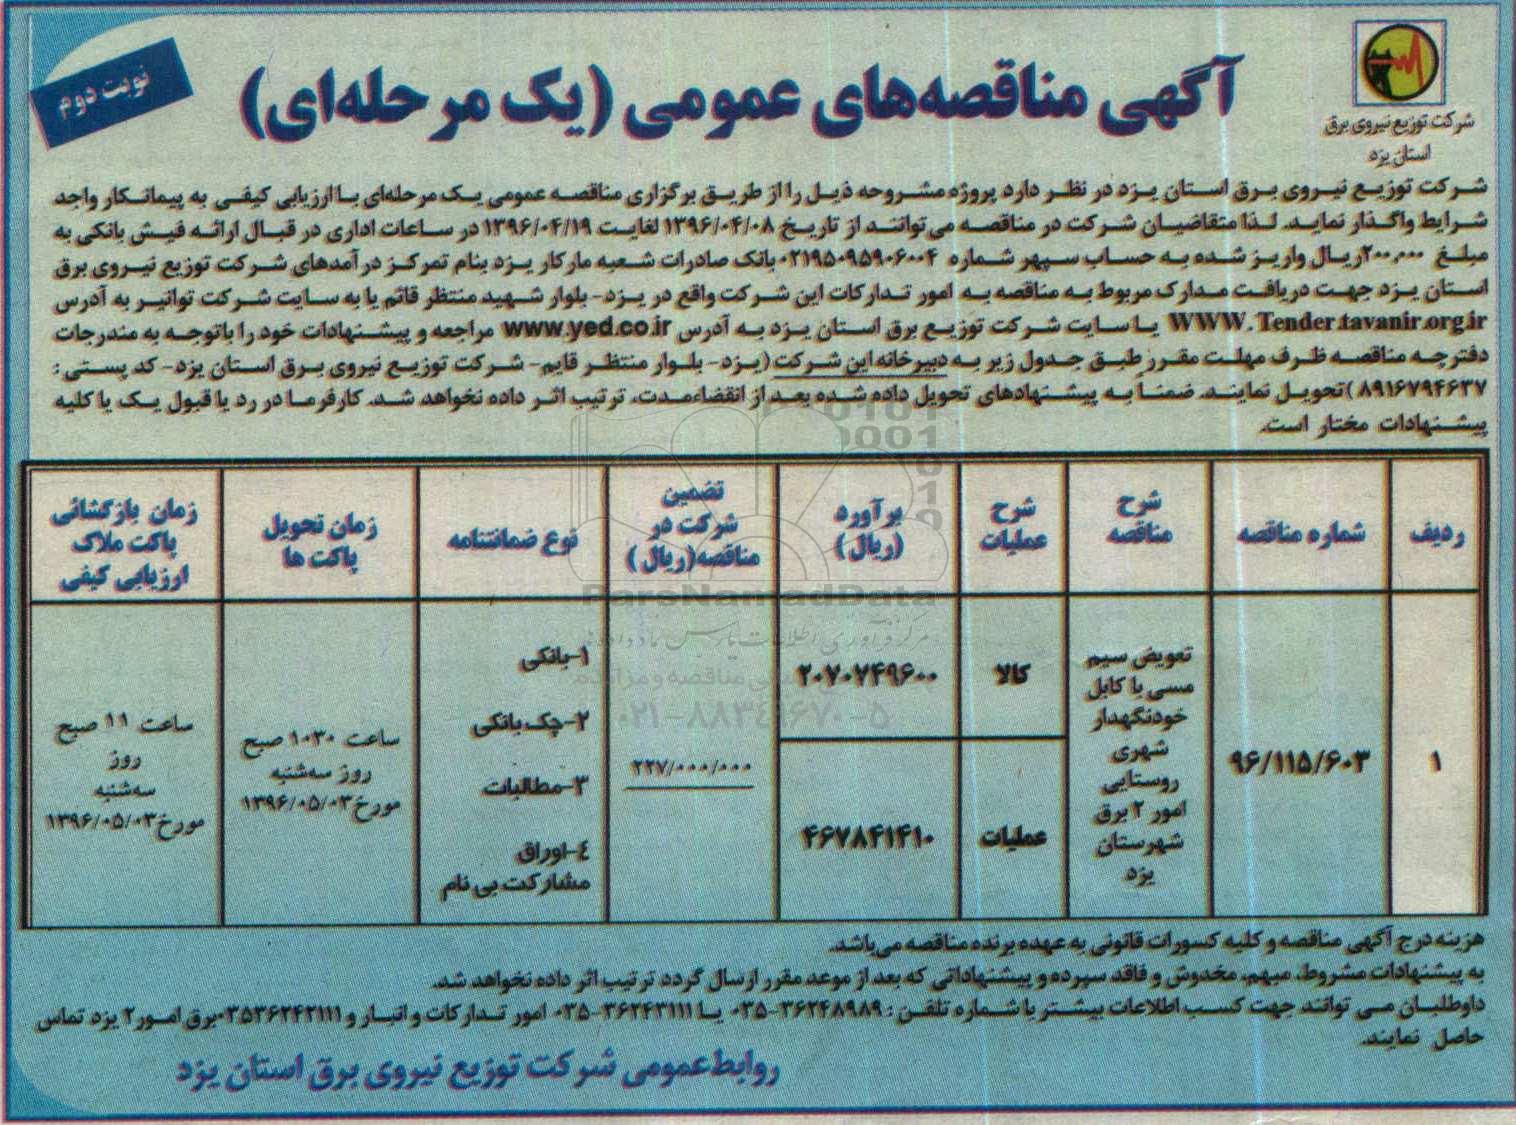 نوبت دوم
شرکت توزیع نیروی برق
استان یزد
آگهی مناقصه‌های عمومی (یک مرحله‌ای)
شرکت توزیع نیروی برق استان یزد در نظر دارد پروژه مشروحه ذیل را از طریق برگزاری مناقصه عمومی یک مرحله‌ای با ارزیابی کیفی به پیمانکار واجد
شرایط واگذار نماید. لذا متقاضیان شرکت در مناقصه می‌توانند از تاریخ ۱۳۹۶/۰۴/۰۸ لغایت ۱۳۹۶/۰۴/۱۹ در ساعات اداری در قبال ارائه فیش بانکی به
مبلغ ۲۰۰,۰۰۰ ریال واریز شده به حساب سپهر شماره ۰۲۱۹۵۰۹۵۹۰۶۰۰۴ بانک صادرات شعبه مارکار یزد بنام تمرکز درآمدهای شرکت توزیع نیروی برق
استان یزد جهت دریافت مدارک مربوط به مناقصه به امور تدارکات این شرکت واقع در یزد- بلوار شهید منتظر قائم یا به سایت شرکت توانیر به آدرس
WWW.Tender.tavanir.org.ir یا سایت شرکت توزیع برق استان یزد به آدرس www.yed.co.ir مراجعه و پیشنهادات خود را باتوجه به مندرجات
دفترچه مناقصه ظرف مهلت مقرر طبق جدول زیر به دبیرخانه این شرکت (یزد- بلوار منتظر قایم- شرکت توزیع نیروی برق استان یزد- کد پستی:
۸۹۱۶۷۹۴۶۳۷) تحویل نمایند. ضمناً به پیشنهادهای تحویل داده شده بعد از انقضاء مدت، ترتیب اثر داده نخواهد شد. کارفرما در رد یا قبول یک یا کلیه
پیشنهادات مختار است.
ردیف
شماره مناقصه
شرح
مناقصه
شرح
عملیات
برآورد
(ریال)
تضمین
شرکت در
مناقصه(ریال)
نوع ضمانتنامه
زمان تحویل
پاکت ها
زمان بازگشائی
پاکت ملاک
ارزیابی کیفی
۱
۹۶/۱۱۵/۶۰۳
تعویض سیم
مسی با کابل
خودنگهدار
شهری
روستایی
امور ۲ برق
شهرستان
یزد
کالا
۲۰۷۰۷۴۹۶۰۰
عملیات
۴۶۷۸۴۱۴۱۰
۲۲۷/۰۰۰/۰۰۰
۱-بانکی
۲-چک بانکی
۳-مطالبات
٤-اوراق
مشارکت بی نام
ساعت ۱۰:۳۰ صبح
روز سه‌شنبه
مورخ ۱۳۹۶/۰۵/۰۳
ساعت ۱۱ صبح
روز
سه‌شنبه
مورخ ۱۳۹۶/۰۵/۰۳
ParsNamadData
۰۲۱-۸۸۳۴۹۶۷۰-۵
هزینه درج آگهی مناقصه و کلیه کسورات قانونی به عهده برنده مناقصه می‌باشد.
به پیشنهادات مشروط، مبهم، مخدوش و فاقد سپرده و پیشنهاداتی که بعد از موعد مقرر ارسال گردد ترتیب اثر داده نخواهد شد.
داوطلبان می توانند جهت کسب اطلاعات بیشتر با شماره تلفن: ۳۶۲۴۸۹۸۹-۰۳۵ یا ۳۶۲۴۳۱۱۱-۰۳۵ امور تدارکات و انبار و ۰۳۵۳۶۲۴۳۱۱۱ برق امور۲ یزد تماس
حاصل نمایند.
روابط عمومی شرکت توزیع نیروی برق استان یزد